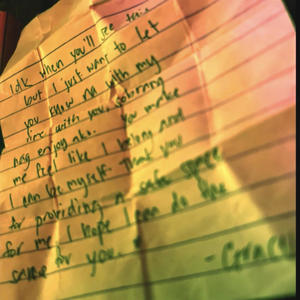 idk when you'll see this
but I just want to let
you know
with you
enjoy you make
me feel like I belong and
I can be myself. Thank you
for providing a safe space
for me I hope I can do the
same for you.
- Grace